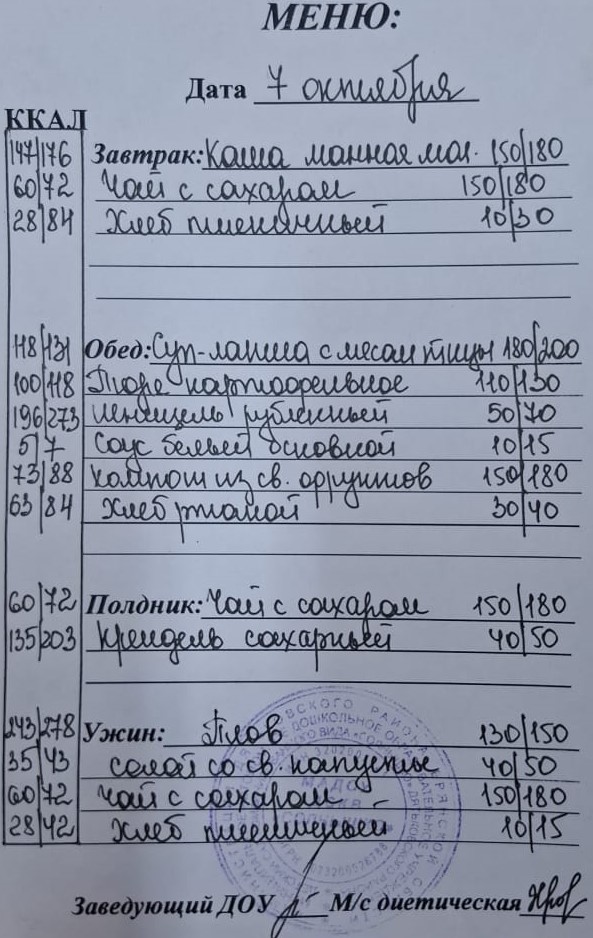 МЕНЮ:
Дата 7 октября
ККАЛ
147/176 Завтрак: Каша манная мол. 150/180
60/72 Чай с сахаром 150/180
28/84 Хлеб пшеничный 10/30
118/131 Обед: Суп-лапша с мясом птицы 180/200
100/118 Пюре картофельное 110/130
196/273 Шницель рубленный 50/70
5/7 Соус белый основной 10/15
73/88 Компот из св. фруктов 150/180
63/84 Хлеб ржаной 30/40
60/72 Полдник: Чай с сахаром 150/180
135/203 Крендель сахарный 40/50
243/278 Ужин: Плов 130/150
35/43 салат со св. капусты 40/50
60/72 Чай с сахаром 150/180
28/42 Хлеб пшеничный 10/15
Заведующий ДОУ М/с диетическая